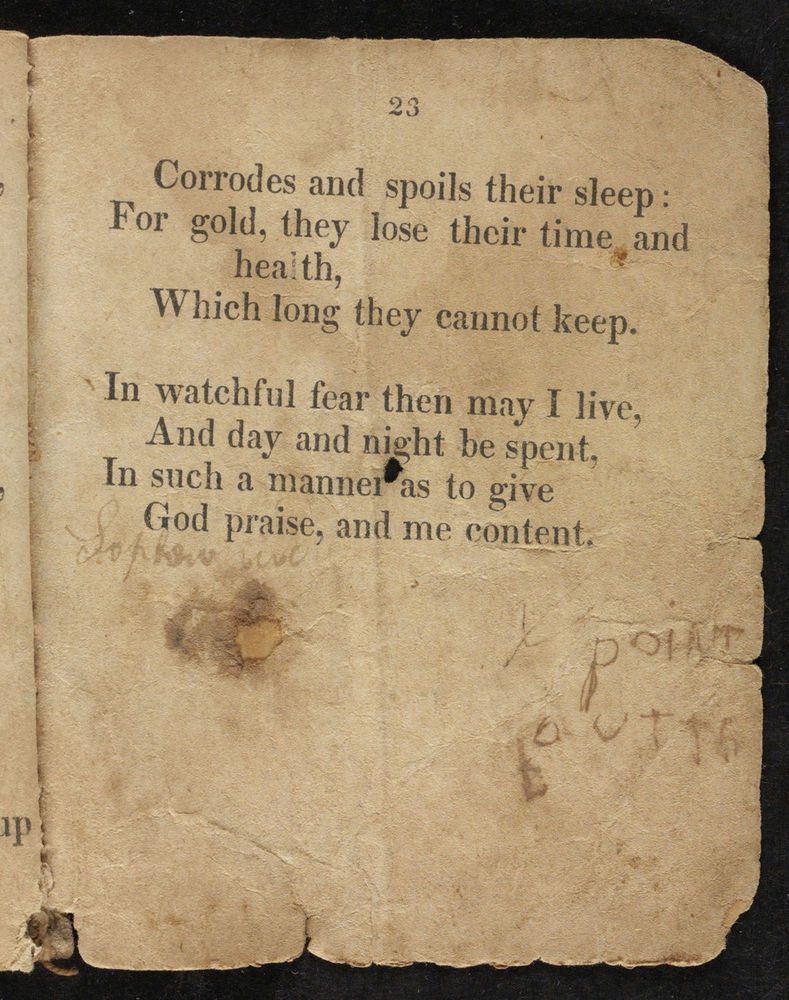 23
Corrodes and spoils their sleep:
For gold, they lose their time and
health,
Which long they cannot keep.
In watchful fear then may I live,
And day and night be spent,
In such a manner as to give
God praise, and me content.
POINT
up